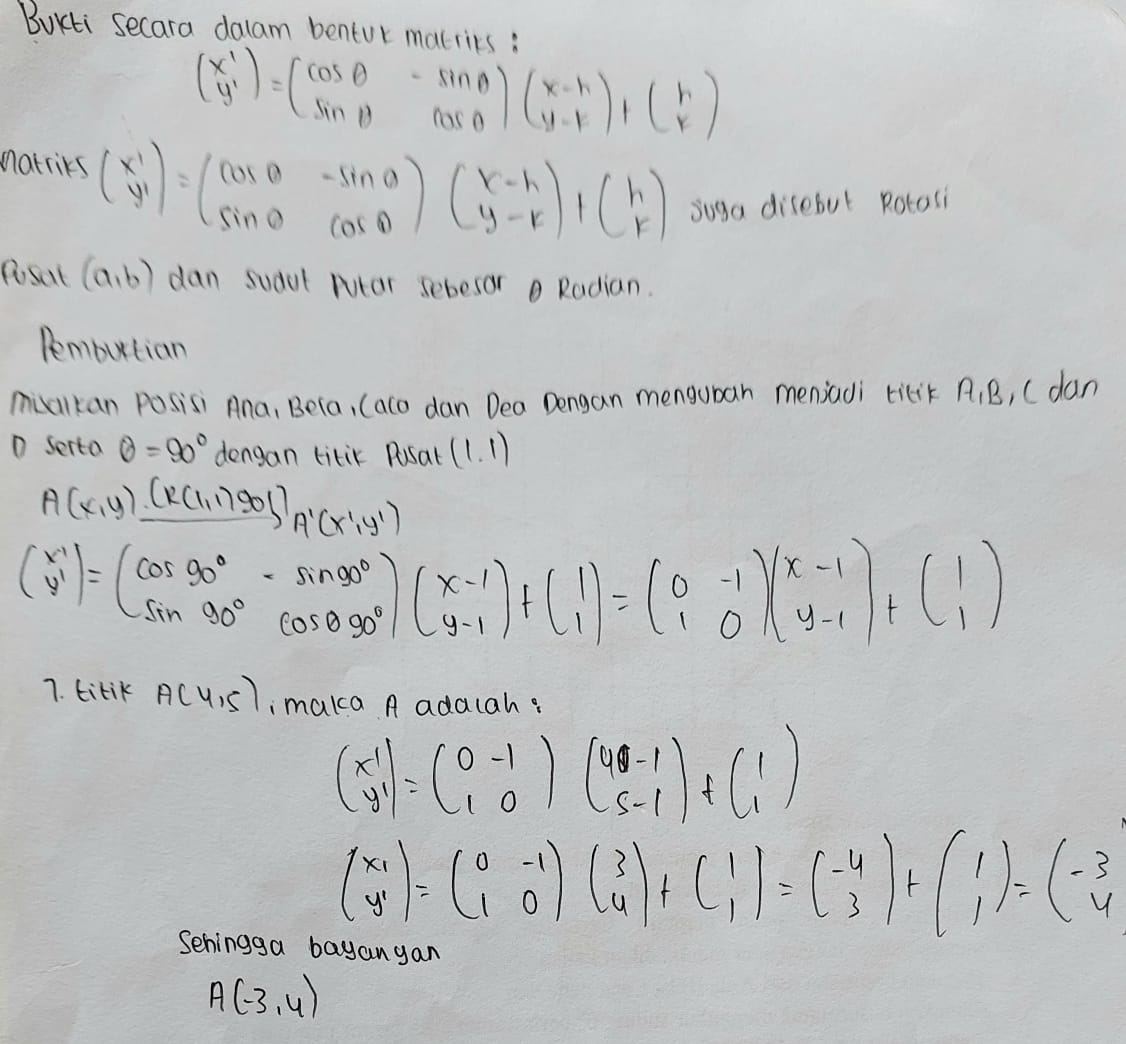 Bukti secara dalam bentuk matriks :
(x' y') = (cos θ - sin θ sin θ cos θ) (x-h y-k) + (h k)
Matriks (x' y') = (cos θ -sin θ sin θ cos θ) (x-h y-k) + (h k) Juga disebut Rotasi
Pusat (a,b) dan sudut putar sebesar θ Radian.
Pembuktian
Misalkan Posisi Ana, Bera, Caca dan Dea Dengan mengubah menjadi titik A, B, C dan
D serta θ = 90° dengan titik Pusat (1.1)
A(x,y) . (R(1,1) 90°)] A'(x',y')
(x' y') = (cos 90° - sin 90° sin 90° cos θ 90°) (x-1 y-1) + (1 1) = (0 -1 1 0) (x-1 y-1) + (1 1)
1. titik A(4,5), maka A adalah :
(x' y') = (0 -1 1 0) (4-1 5-1) + (1 1)
(x' y') = (0 -1 1 0) (3 4) + (1 1) = (-4 3) + (1 1) = (-3 4
Sehingga bayangan
A(-3,4)